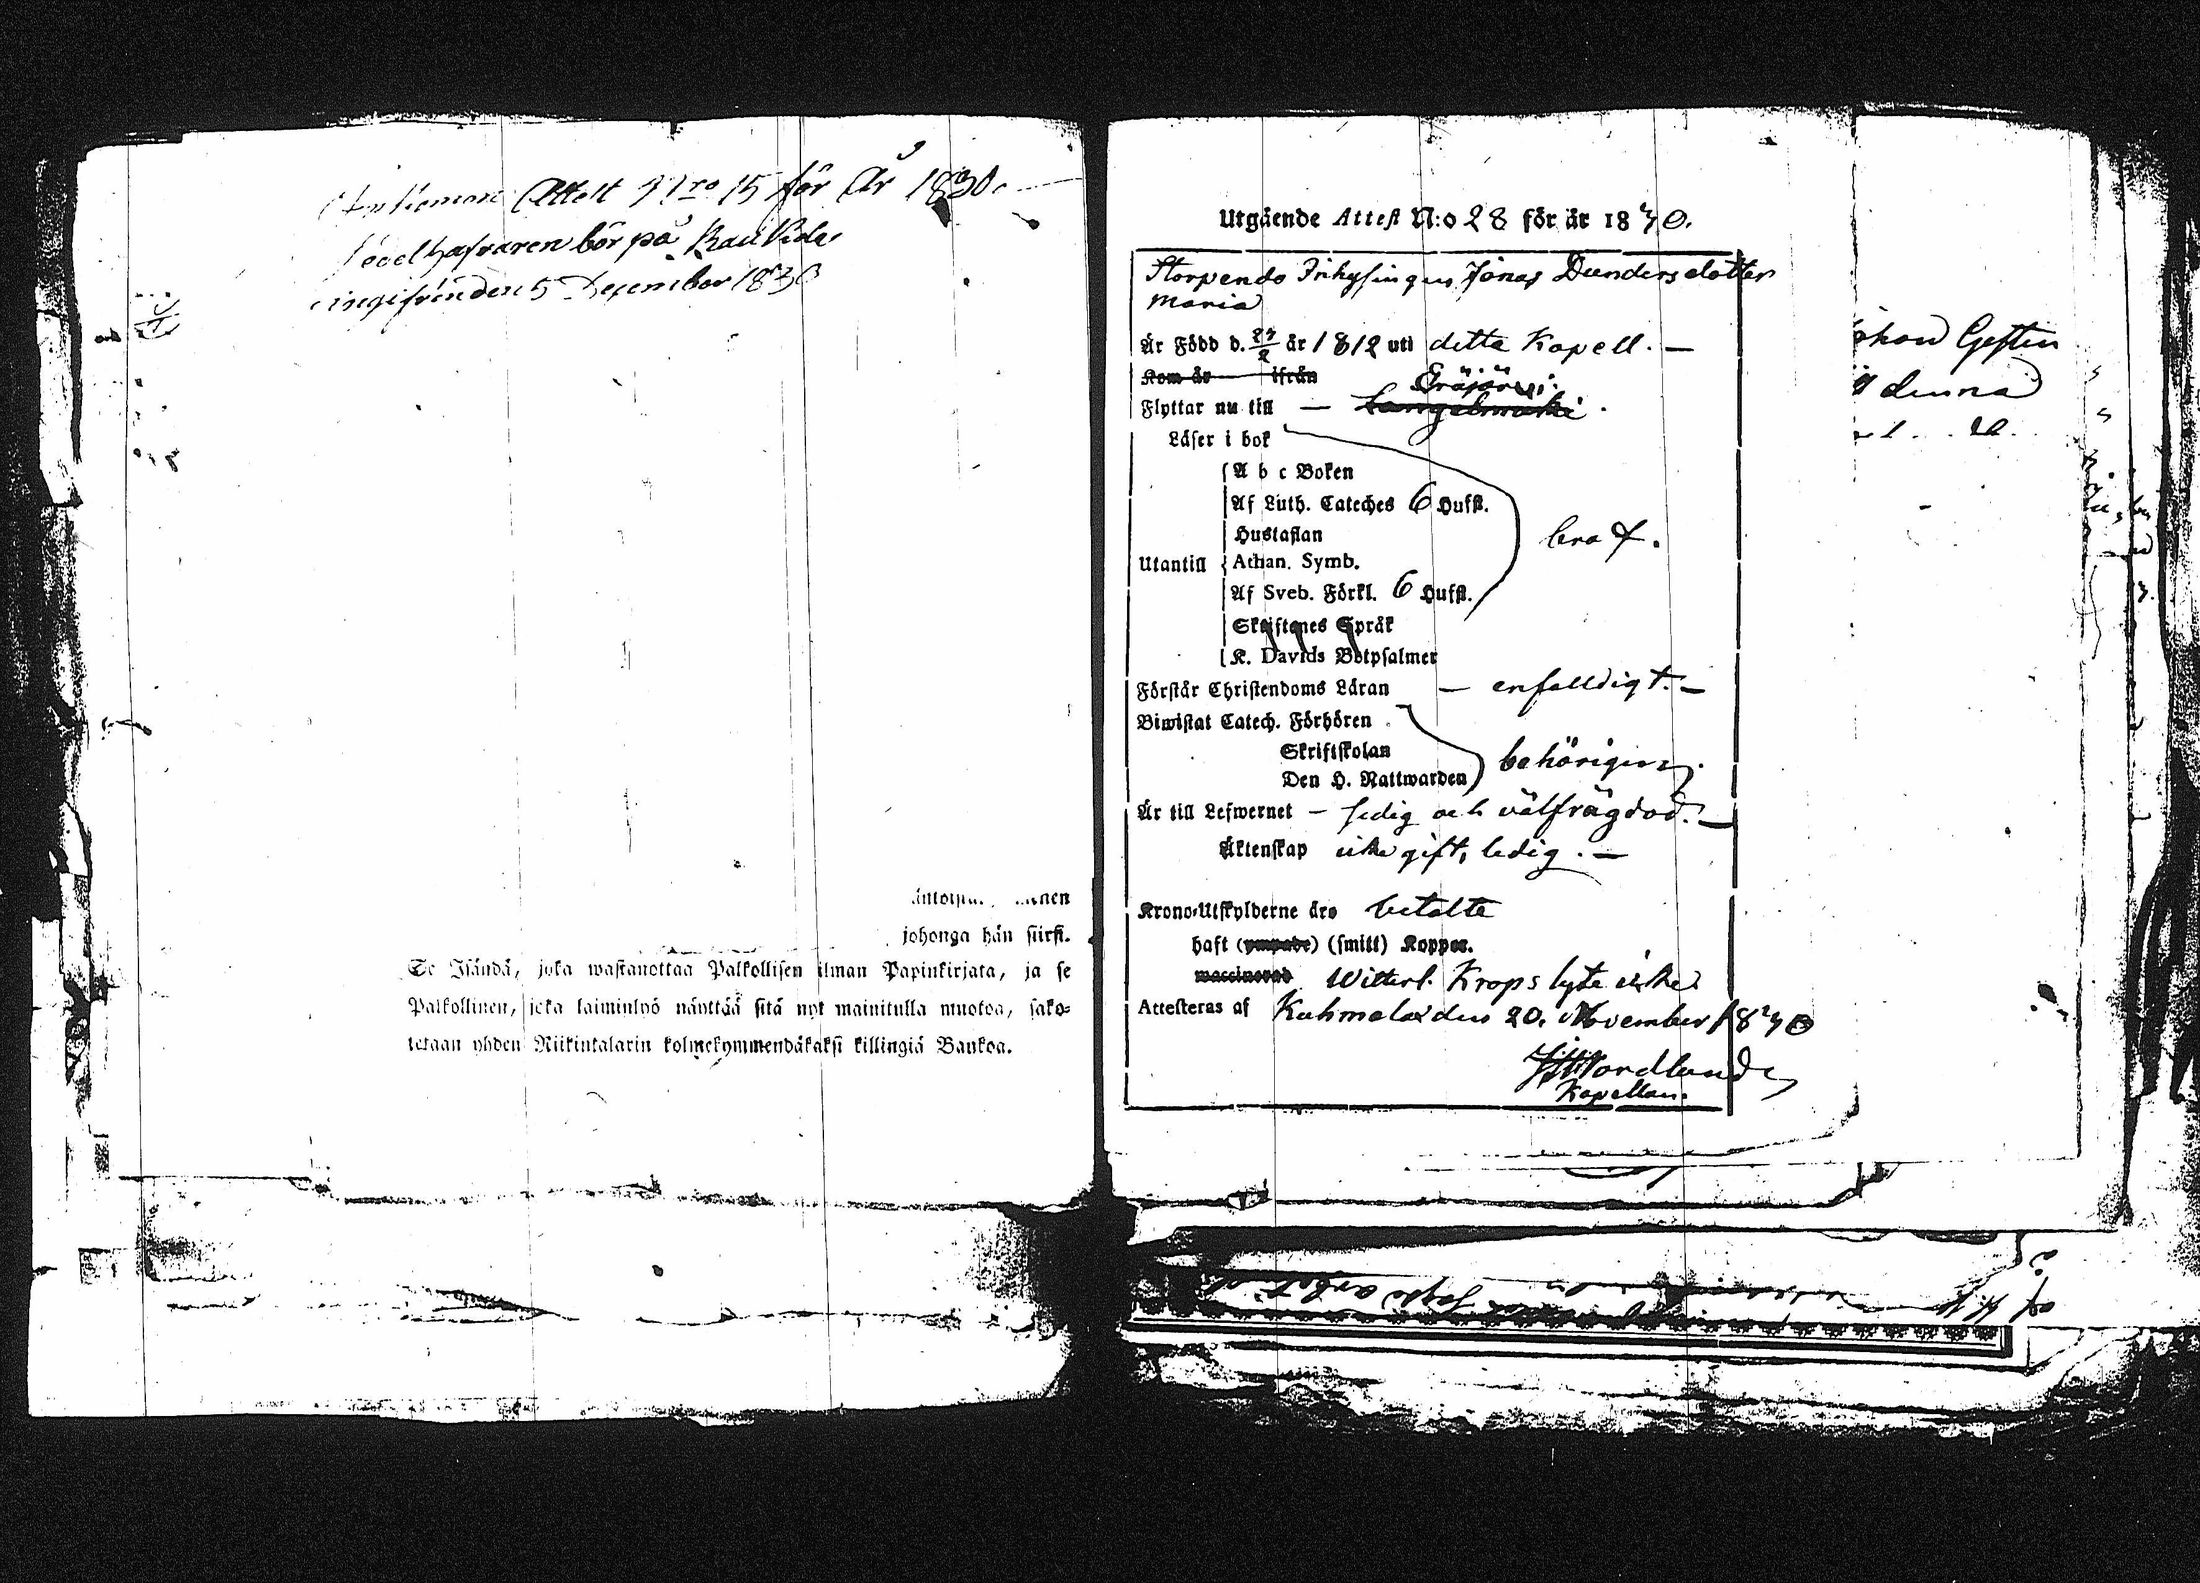 Ankommen Attest Nro 15 för År 1830.
Sedelhafvaren bör på Raukida
ingifven den 5 December 1830
johonga hän siirsi.
Se Isändä, joka wastanottaa Palkollisen ilman Papinkirjata, ja se
Palkollinen, joka laiminlyö näyttää sitä nyt mainitulla muotoa, sako-
tetaan yhden Riikintalarin kolmekymmendäkaksi killingiä Bankoa.
Utgående Attest N:o 28 för år 1830.
Storpendo Inhysingen Jonas Dunders dotter
Maria
Är Född d. 27/2 år 1812 uti detta Kapell. —
Kom år ifrån
Eräjärvi
Flyttar nu till — Längelmäki.
Läser i bok
A b c Boken
Af Luth. Cateches 6 Hufst.
Hustaflan
braf.
Utantill Athan. Symb.
Af Sveb. Förkl. 6 Hufst.
Skriftenes Språk
K. Davids Botpsalmer
Förstår Christendoms Läran — enfalldigt. —
Biwistat Catech. Förhören
Skriftskolan
behörigen.
Den H. Nattwarden
Är till Lefwernet — sedig och välfrägdad. —
Äktenskap icke gift, ledig. —
Krono-Utskylderne äro betalte
haft (ympade) (smitt) Koppor.
waccinerad Witterl. Krops lyte icke
Attesteras af Kuhmalax den 20. November 1830
Nordlund
Kapellan.
denna